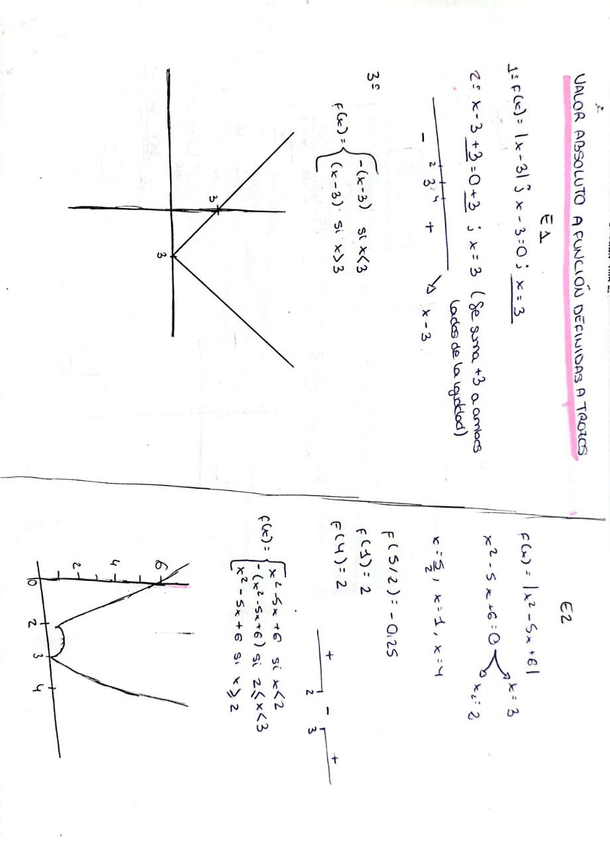 VALOR ABSOLUTO A FUNCIÓN DEFINIDAS A TROZOS
E1
1º F(x) = |x-3| ; x-3=0 ; x=3
2º x-3+3=0+3 ; x=3 (Se suma +3 a ambos
lados de la igualdad)
- 2 3 4 + x-3
3º
F(x) = { -(x-3) si x<3
(x-3) si x>3
3
3
E2
F(x) = |x²-5x+6|
x²-5x+6=0 x=3
x=2
x=5/2, x=1, x=4
F(5/2) = -0.25
F(1) = 2
F(4) = 2
+ 2 - 3 +
F(x) = { x²-5x+6 si x<2
-(x²-5x+6) si 2≤x<3
x²-5x+6 si x≥2
6
4
2
0 2 3 4